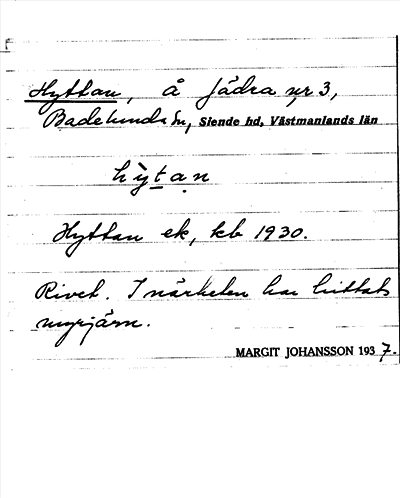 Hyttan, å Jädra nr 3,
Badelunda sn, Siende hd, Västmanlands län
hỳtạn
Hyttan ek, kb 1930.
Rivet. I närheten har hittats
myrjärn.
MARGIT JOHANSSON 1937.